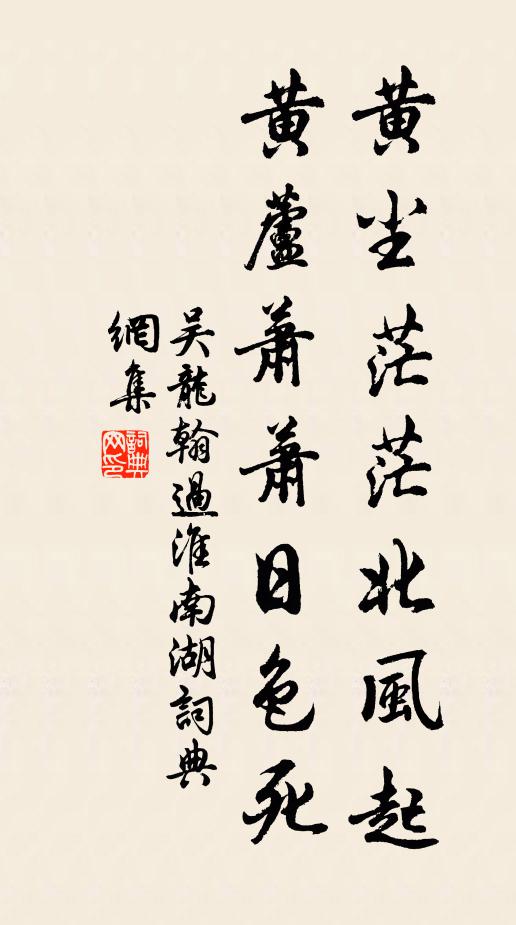 黃尘茫茫北風起
黃蘆蕭蕭日色死
吴龍翰過淮南湖詞典
網集
詞典网印